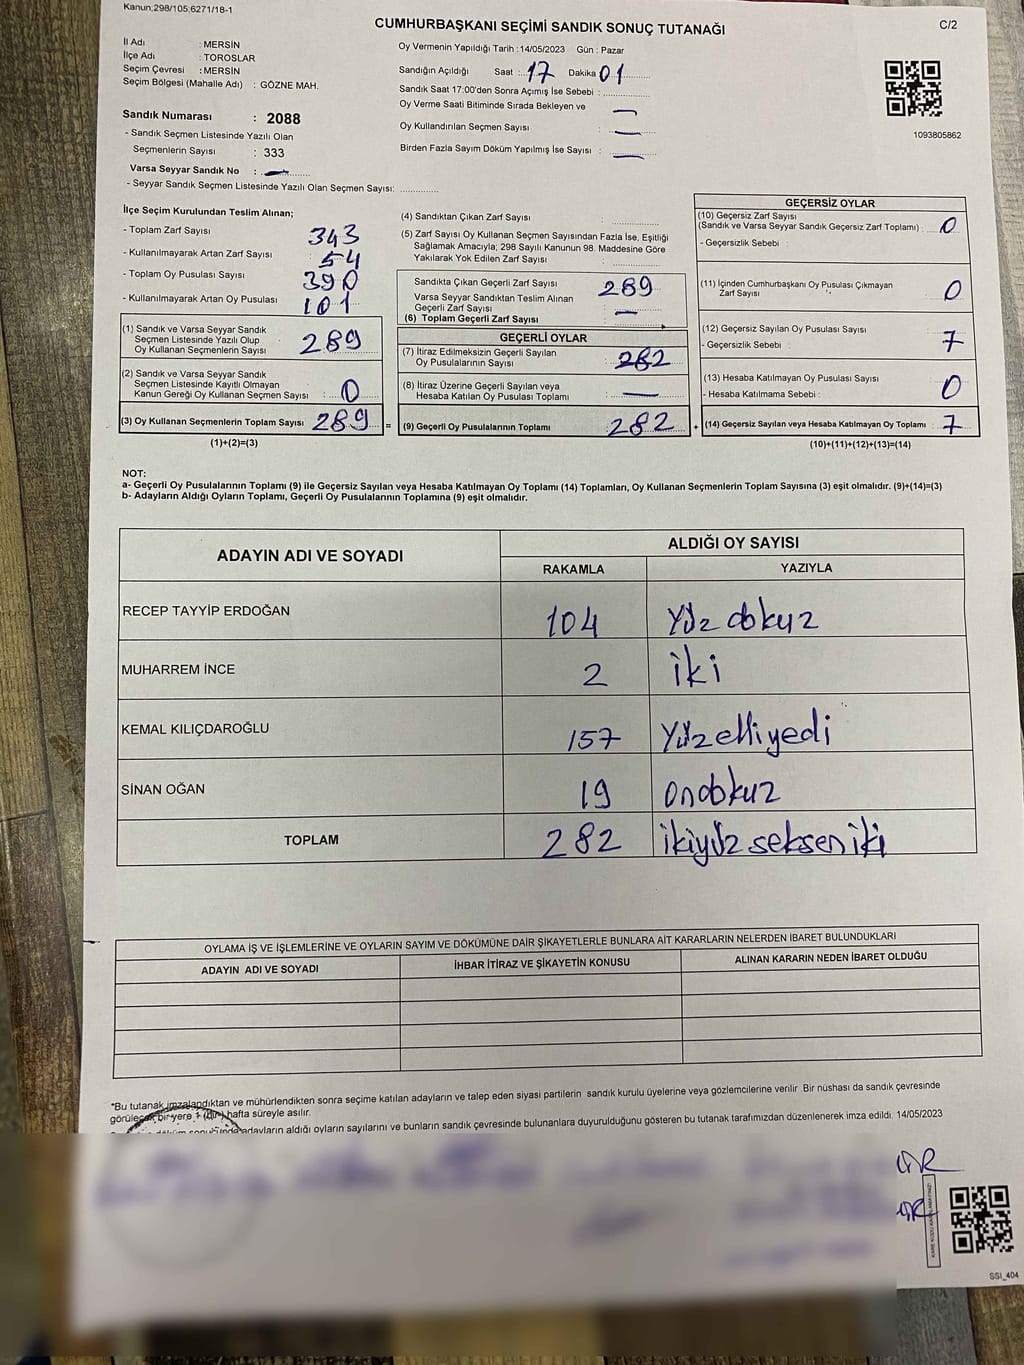 Kanun;298/105;6271/18-1
CUMHURBAŞKANI SEÇİMİ SANDIK SONUÇ TUTANAĞI
C/2
İl Adı : MERSİN
İlçe Adı : TOROSLAR
Seçim Çevresi : MERSİN
Seçim Bölgesi (Mahalle Adı) : GÖZNE MAH.
Sandık Numarası : 2088
- Sandık Seçmen Listesinde Yazılı Olan
Seçmenlerin Sayısı : 333
Varsa Seyyar Sandık No : —
- Seyyar Sandık Seçmen Listesinde Yazılı Olan Seçmen Sayısı:
Oy Vermenin Yapıldığı Tarih : 14/05/2023 Gün : Pazar
Sandığın Açıldığı Saat : 17 Dakika 01
Sandık Saat 17:00'den Sonra Açımış İse Sebebi :
Oy Verme Saati Bitiminde Sırada Bekleyen ve —
Oy Kullandırılan Seçmen Sayısı : —
Birden Fazla Sayım Döküm Yapılmış İse Sayısı : —
1093805862
İlçe Seçim Kurulundan Teslim Alınan;
- Toplam Zarf Sayısı 343
- Kullanılmayarak Artan Zarf Sayısı 54
- Toplam Oy Pusulası Sayısı 390
- Kullanılmayarak Artan Oy Pusulası 101
(1) Sandık ve Varsa Seyyar Sandık
Seçmen Listesinde Yazılı Olup
Oy Kullanan Seçmenlerin Sayısı : 289
(2) Sandık ve Varsa Seyyar Sandık
Seçmen Listesinde Kayıtlı Olmayan
Kanun Gereği Oy Kullanan Seçmen Sayısı : 0
(3) Oy Kullanan Seçmenlerin Toplam Sayısı 289 =
(1)+(2)=(3)
(4) Sandıktan Çıkan Zarf Sayısı :
(5) Zarf Sayısı Oy Kullanan Seçmen Sayısından Fazla İse, Eşitliği
Sağlamak Amacıyla; 298 Sayılı Kanunun 98. Maddesine Göre
Yakılarak Yok Edilen Zarf Sayısı :
Sandıkta Çıkan Geçerli Zarf Sayısı 289
Varsa Seyyar Sandıktan Teslim Alınan
Geçerli Zarf Sayısı : —
(6) Toplam Geçerli Zarf Sayısı
GEÇERLİ OYLAR
(7) İtiraz Edilmeksizin Geçerli Sayılan
Oy Pusulalarının Sayısı : 282
(8) İtiraz Üzerine Geçerli Sayılan veya
Hesaba Katılan Oy Pusulası Toplamı : —
(9) Geçerli Oy Pusulalarının Toplamı : 282 +
GEÇERSİZ OYLAR
(10) Geçersiz Zarf Sayısı
(Sandık ve Varsa Seyyar Sandık Geçersiz Zarf Toplamı) : 0
- Geçersizlik Sebebi :
(11) İçinden Cumhurbaşkanı Oy Pusulası Çıkmayan
Zarf Sayısı : 0
(12) Geçersiz Sayılan Oy Pusulası Sayısı : 7
- Geçersizlik Sebebi :
(13) Hesaba Katılmayan Oy Pusulası Sayısı : 0
- Hesaba Katılmama Sebebi :
(14) Geçersiz Sayılan veya Hesaba Katılmayan Oy Toplamı : 7
(10)+(11)+(12)+(13)=(14)
NOT:
a- Geçerli Oy Pusulalarının Toplamı (9) ile Geçersiz Sayılan veya Hesaba Katılmayan Oy Toplamı (14) Toplamları, Oy Kullanan Seçmenlerin Toplam Sayısına (3) eşit olmalıdır. (9)+(14)=(3)
b- Adayların Aldığı Oyların Toplamı, Geçerli Oy Pusulalarının Toplamına (9) eşit olmalıdır.
ADAYIN ADI VE SOYADI ALDIĞI OY SAYISI
RAKAMLA YAZIYLA
RECEP TAYYİP ERDOĞAN 104 Yüz dokuz
MUHARREM İNCE 2 iki
KEMAL KILIÇDAROĞLU 157 Yüzelliyedi
SİNAN OĞAN 19 ondokuz
TOPLAM 282 ikiyüz seksen iki
OYLAMA İŞ VE İŞLEMLERİNE VE OYLARIN SAYIM VE DÖKÜMÜNE DAİR ŞİKAYETLERLE BUNLARA AİT KARARLARIN NELERDEN İBARET BULUNDUKLARI
ADAYIN ADI VE SOYADI İHBAR İTİRAZ VE ŞİKAYETİN KONUSU ALINAN KARARIN NEDEN İBARET OLDUĞU
*Bu tutanak imzalandıktan ve mühürlendikten sonra seçime katılan adayların ve talep eden siyasi partilerin sandık kurulu üyelerine veya gözlemcilerine verilir Bir nüshası da sandık çevresinde
görülecek bir yere 1 (bir) hafta süreyle asılır.
adayların aldığı oyların sayılarını ve bunların sandık çevresinde bulunanlara duyurulduğunu gösteren bu tutanak tarafımızdan düzenlenerek imza edildi. 14/05/2023
SSI_404